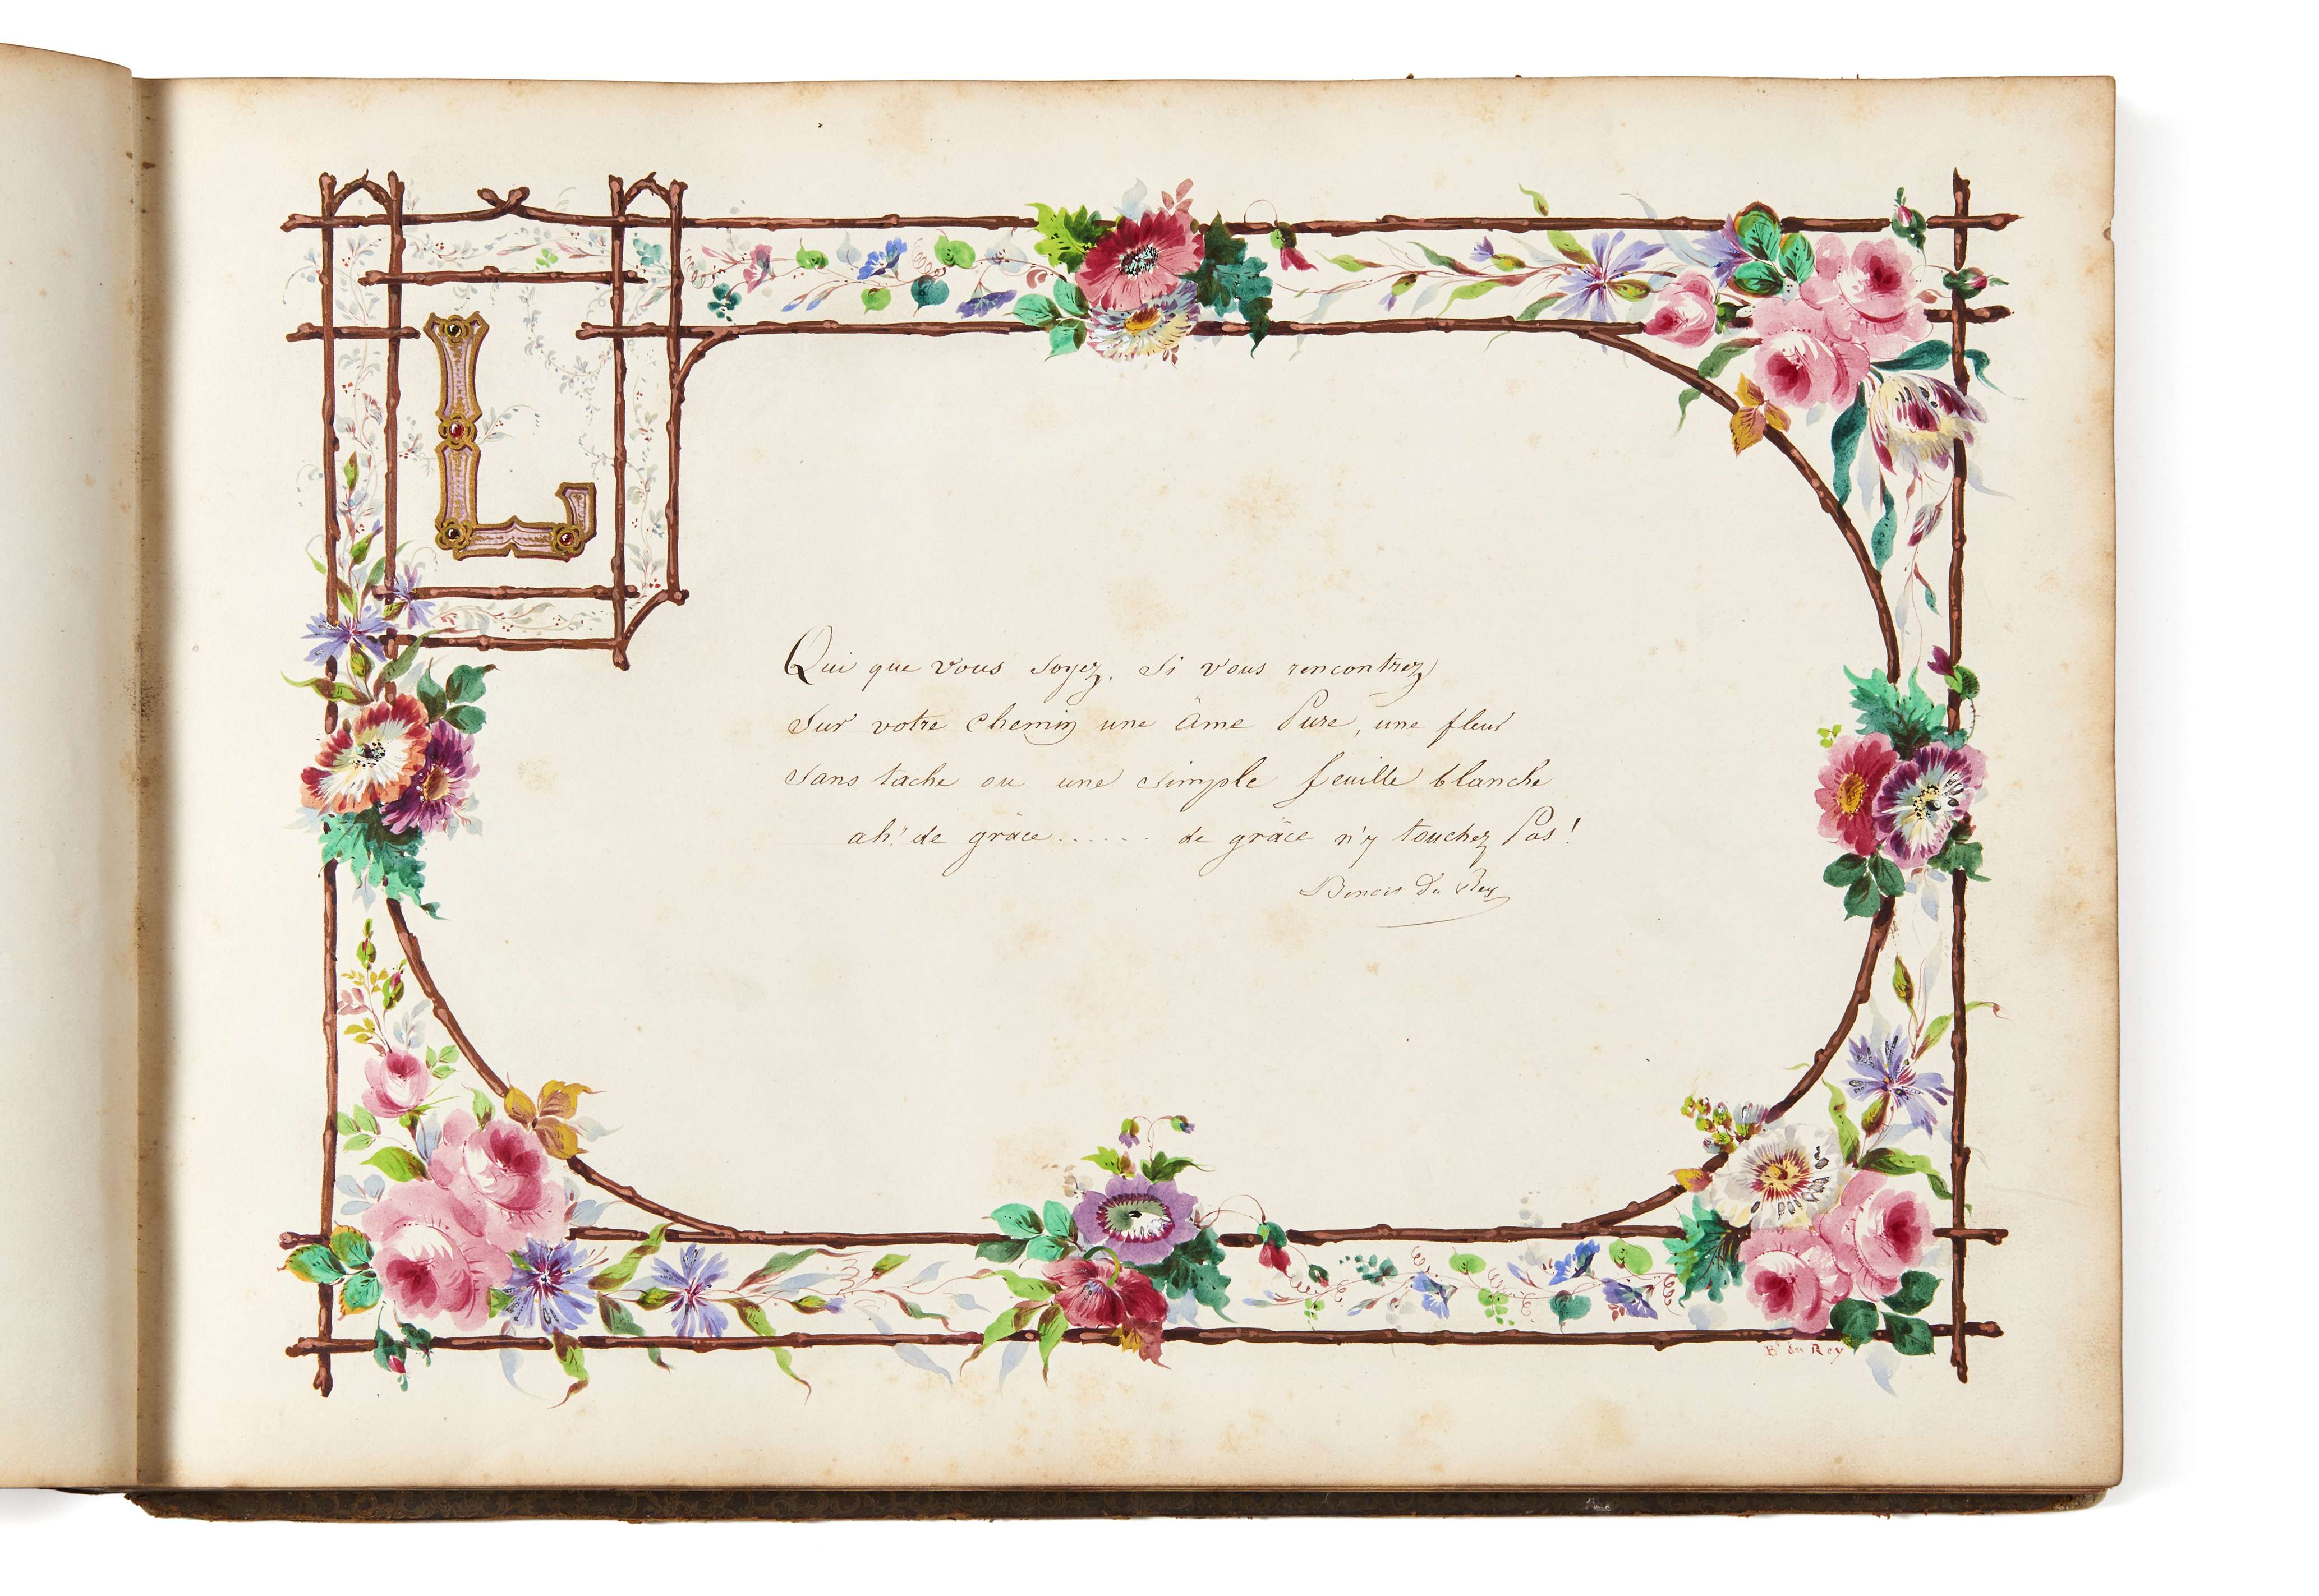 L
Qui que vous soyez, si vous rencontrez
sur votre chemin une âme Pure, une fleur
sans tache ou une simple feuille blanche
ah! de grâce...... de grâce n'y touchez Pas!
Benoit du Rey
Bt du Rey